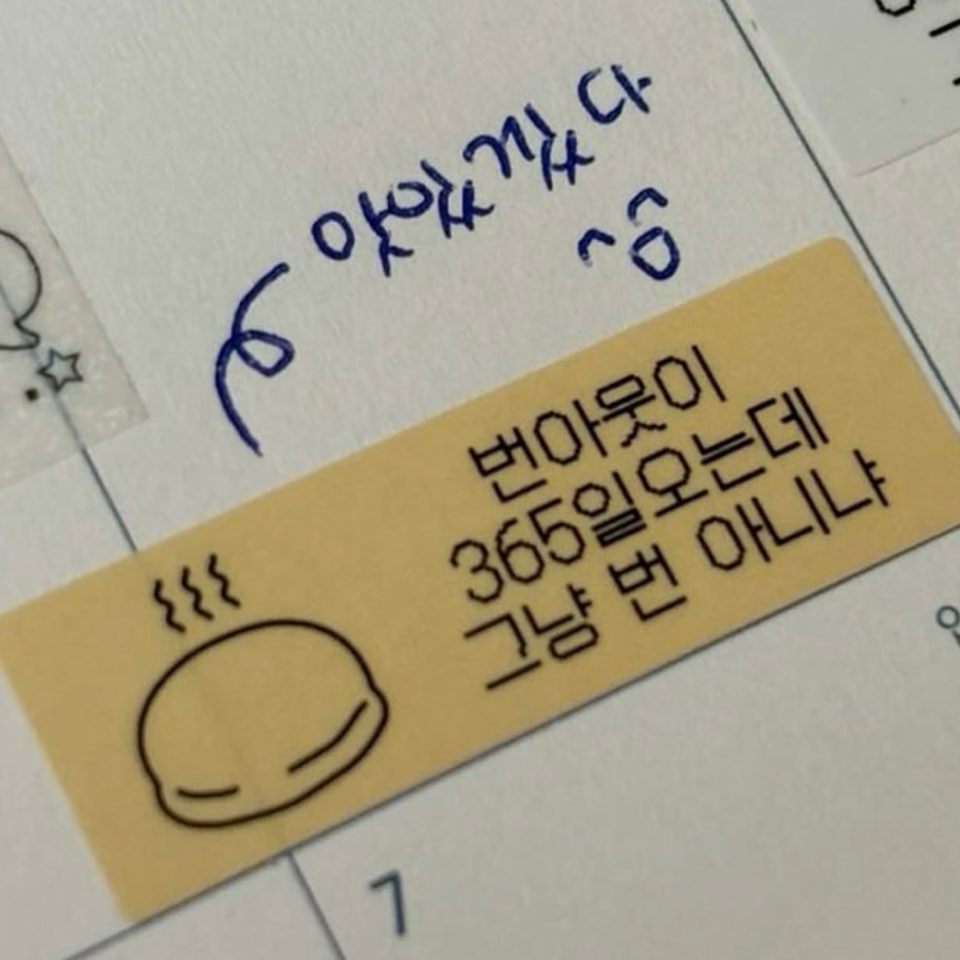 맛있겠다
번아웃이
365일오는데
그냥 번 아니냐
7